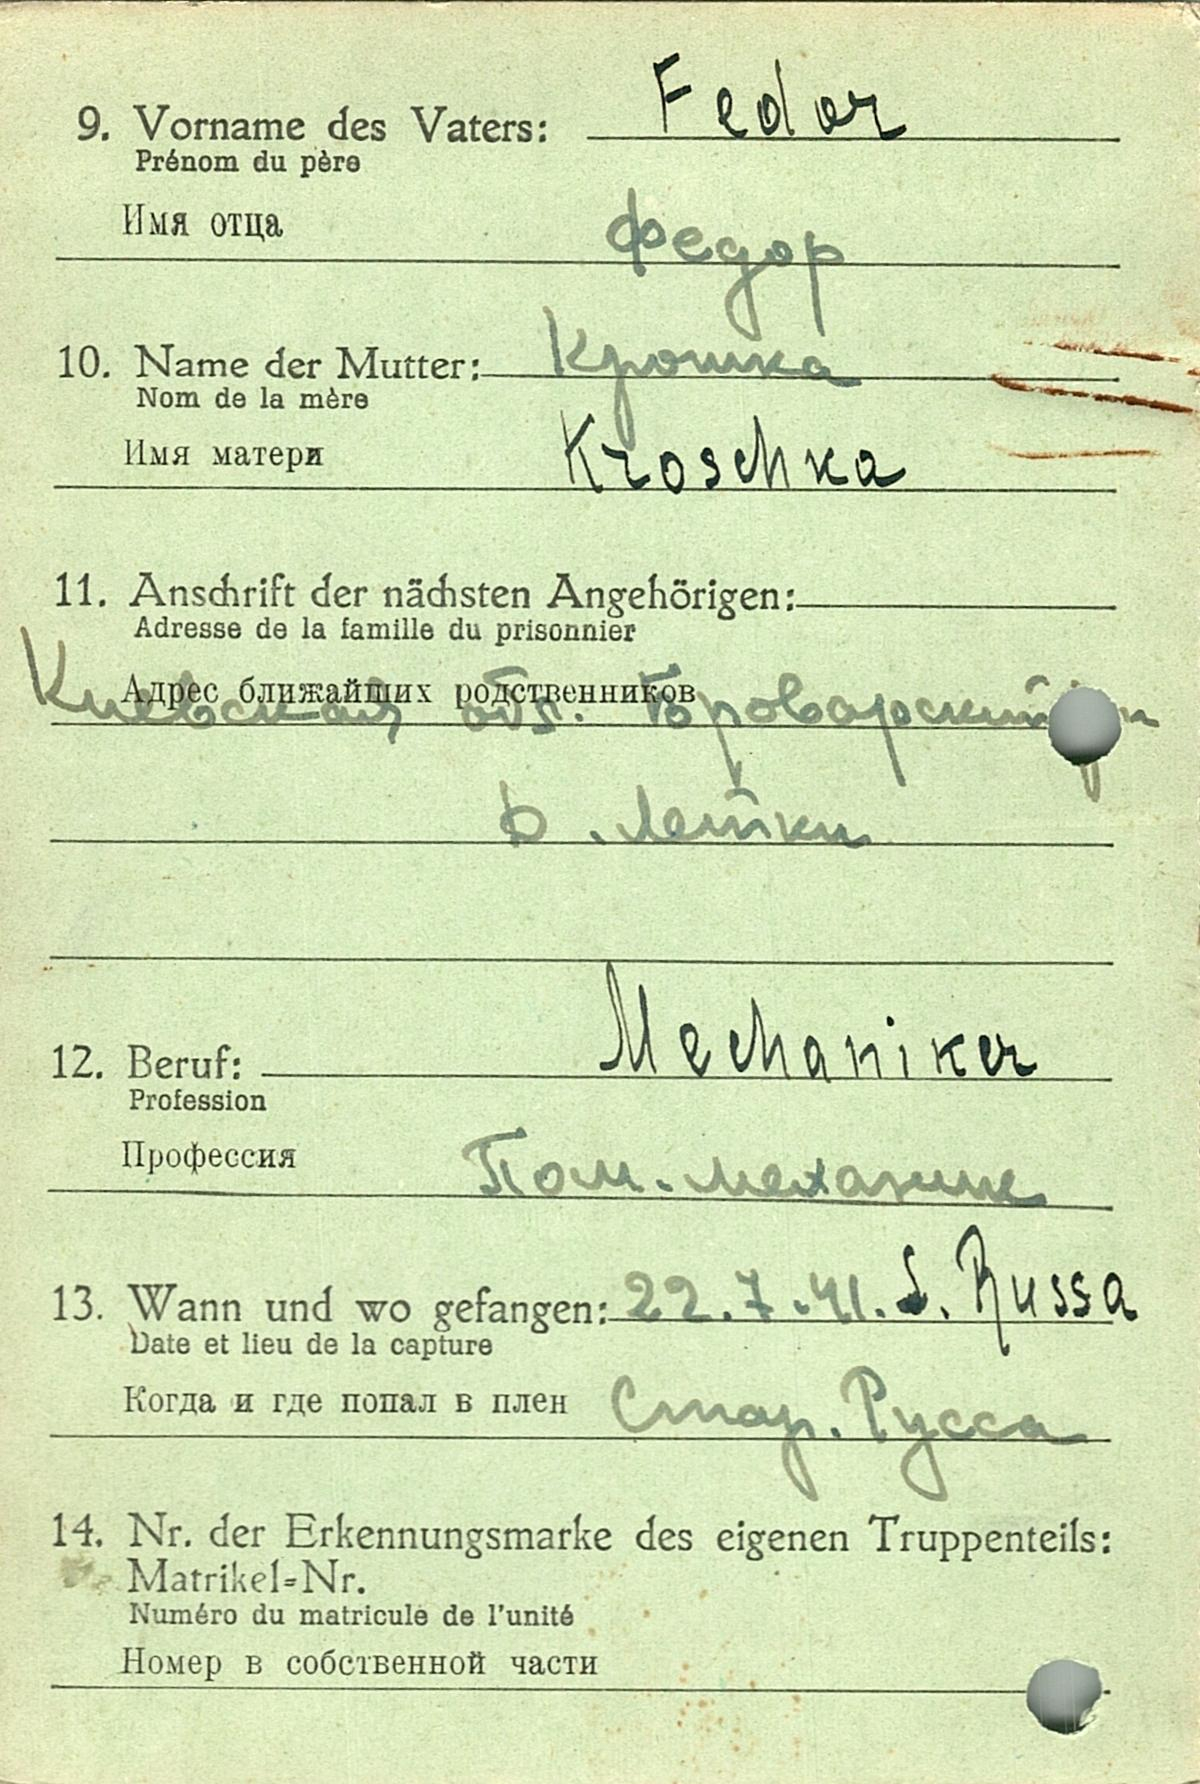 9. Vorname des Vaters: Fedor
Prénom du père
Имя отца
Федор
10. Name der Mutter: Крошка
Nom de la mère
Имя матери
Kroschka
11. Anschrift der nächsten Angehörigen:
Adresse de la famille du prisonnier
Адрес ближайших родственников
Киевская обл. Броварский
Летки
12. Beruf: Mechaniker
Profession
Профессия
Пом. механик
13. Wann und wo gefangen: 22.7.41. S. Russa
Date et lieu de la capture
Когда и где попал в плен
Стар. Русса
14. Nr. der Erkennungsmarke des eigenen Truppenteils:
Matrikel-Nr.
Numéro du matricule de l'unité
Номер в собственной части